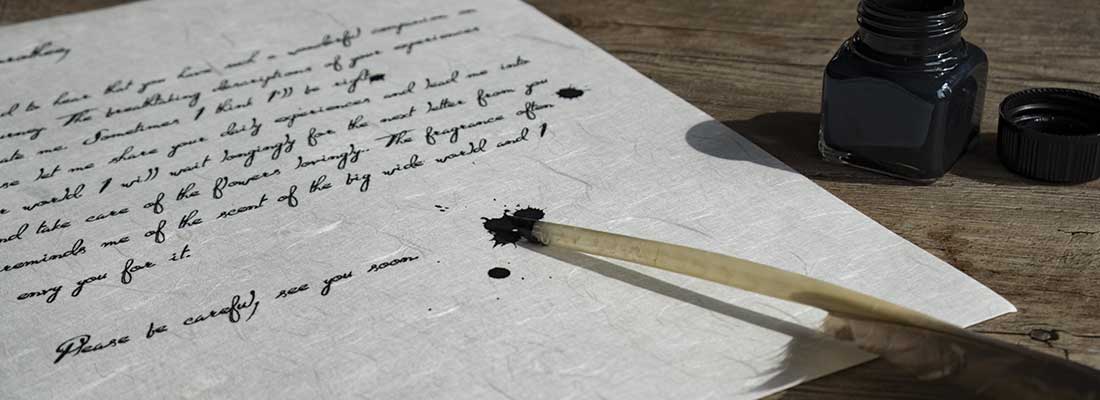 to hear that you have such a wonderful companion on
urney. The breathtaking descriptions of your experiences
ate me. Sometimes I think I'll be right
se let me share your daily experiences and lead me into
r world I will wait longingly for the next letter from you
nd take care of the flowers lovingly. The fragrance often
reminds me of the scent of the big wide world and I
envy you for it.
Please be careful, see you soon